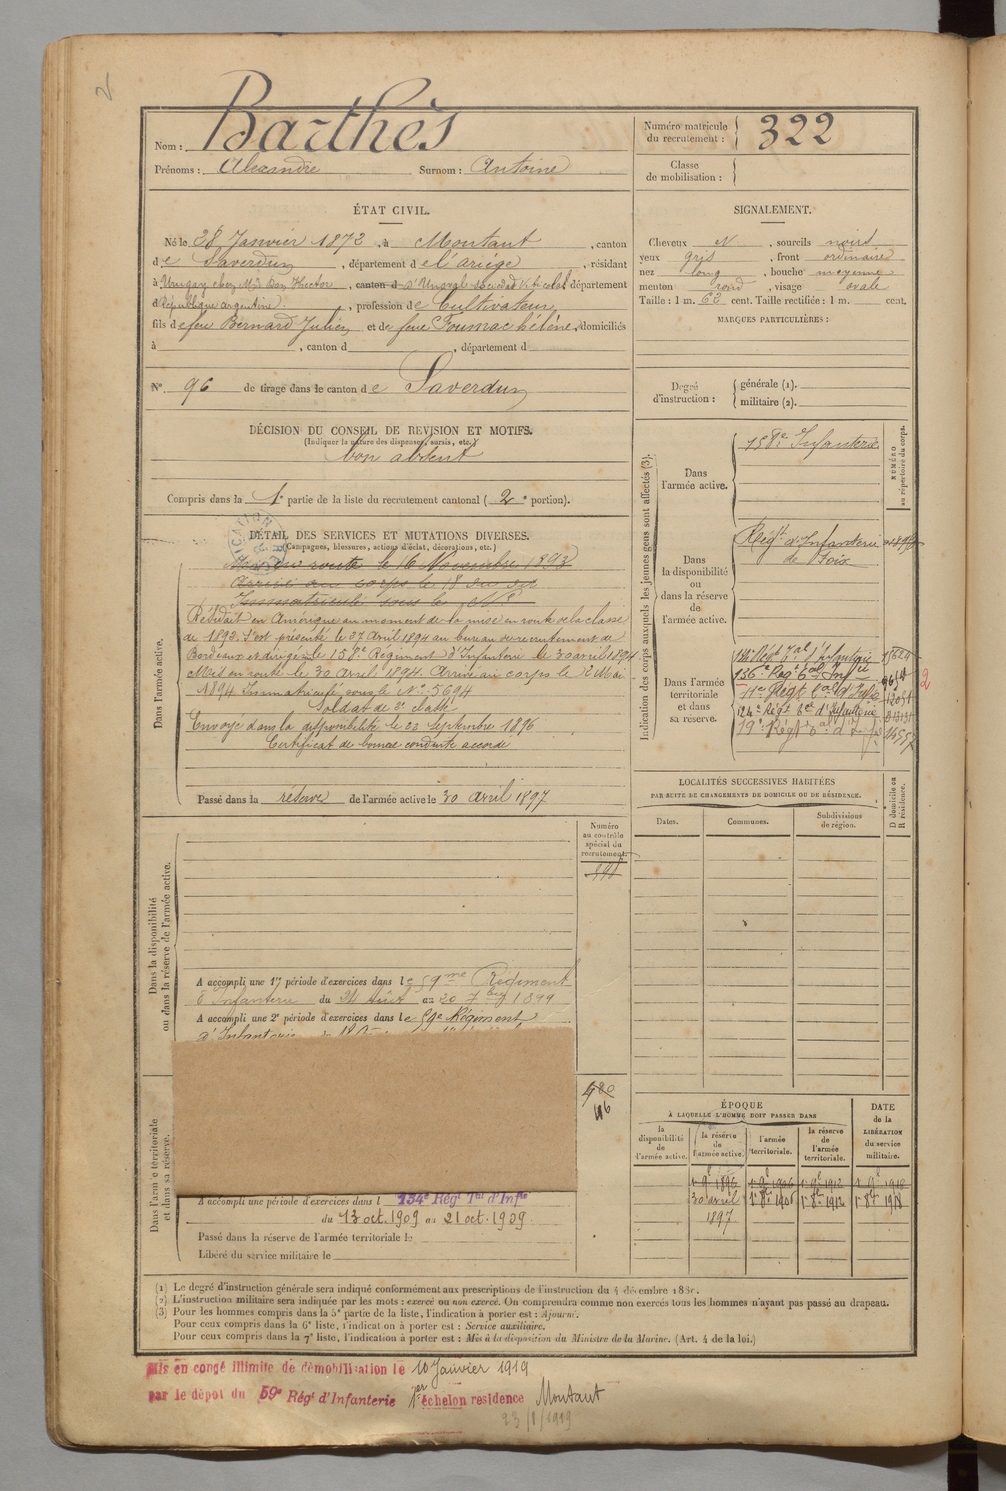 Barthès
Nom :
Prénoms : Alexandre Surnom : Antoine
Numéro matricule du recrutement : 322
Classe de mobilisation :
ÉTAT CIVIL.
Né le 28 Janvier 1872, à Montaut, canton
de Saverdun, département de l'Ariège, résidant
à Urugay chez Mr Don Hector, canton d département
d République argentine, profession de Cultivateur
fils de feu Bernard Julien et de feue Hélène, domiciliés
à , canton d , département d
N° 96 de tirage dans le canton de Saverdun
DÉCISION DU CONSEIL DE REVISION ET MOTIFS.
(Indiquer la nature des dispenses, sursis, etc.)
bon absent
Compris dans la 1e partie de la liste du recrutement cantonal (2e portion).
SIGNALEMENT.
Cheveux N, sourcils noirs
yeux gris, front ordinaire
nez long, bouche moyenne
menton rond, visage ovale
Taille : 1 m. 62 cent. Taille rectifiée : 1 m. cent.
MARQUES PARTICULIÈRES :
Degré d'instruction : générale (1).
militaire (2).
DÉTAIL DES SERVICES ET MUTATIONS DIVERSES.
(Campagnes, blessures, actions d'éclat, décorations, etc.)
en route le 16 Novembre 1893
Arrivé au corps le 18 du dit
Immatriculé sous le N°
Résidait en Amérique au moment de la mise en route de la classe
de 1892. S'est présenté le 27 Avril 1894 au bureau de recrutement de
Bordeaux et dirigé sur le 158e Régiment d'Infanterie le 30 avril 1894
Mis en route le 30 Avril 1894. Arrivé au corps le 2 Mai
1894 Immatriculé sous le N° 5694
Soldat de 2e classe
Envoyé dans la disponibilité le 22 Septembre 1896
Certificat de bonne conduite accordé
Passé dans la réserve de l'armée active le 30 avril 1897
Dans l'armée active.
Indication des corps auxquels les jeunes gens sont affectés (3).
NUMÉRO au répertoire du corps.
Dans l'armée active.
158e Infanterie
Dans la disponibilité ou dans la réserve de l'armée active.
Régt d'Infanterie
de Foix
Dans l'armée territoriale et dans sa réserve.
134e Régt Tal d'Infanterie
136e Regt Tal Infie
11e Régt Tal d'Infie
124e Régt Tal d'Infanterie
19e Régt Tal d'Infie
2
LOCALITÉS SUCCESSIVES HABITÉES
PAR SUITE DE CHANGEMENTS DE DOMICILE OU DE RÉSIDENCE.
D domicile ou R résidence.
Dates. Communes. Subdivisions de région.
Numéro au contrôle spécial du recrutement.
Dans la disponibilité ou dans la réserve de l'armée active.
A accompli une 1re période d'exercices dans le 59me Régiment
d'Infanterie du 24 Août au 20 7bre 1899
A accompli une 2e période d'exercices dans le 59e Régiment
d'Infanterie
Dans l'armée territoriale et dans sa réserve.
480
A accompli une période d'exercices dans l 134e Régt Tal d'Infie
du 13 oct. 1909 au 21 oct. 1909.
Passé dans la réserve de l'armée territoriale le
Libéré du service militaire le
ÉPOQUE
À LAQUELLE L'HOMME DOIT PASSER DANS
DATE de la LIBÉRATION du service militaire.
la disponibilité de l'armée active. la réserve de l'armée active. l'armée territoriale. la réserve de l'armée territoriale.
1 9e 1896 1 9e 1906 1 9e 1912 1 9e 1918
30 avril 1897 1r 8bre 1906 1r 8bre 1912 1r 8bre 1918
(1) Le degré d'instruction générale sera indiqué conformément aux prescriptions de l'instruction du 4 décembre 188
(2) L'instruction militaire sera indiquée par les mots : exercé ou non exercé. On comprendra comme non exercés tous les hommes n'ayant pas passé au drapeau.
(3) Pour les hommes compris dans la 5e partie de la liste, l'indication à porter est : Ajourné.
Pour ceux compris dans la 6e liste, l'indication à porter est : Service auxiliaire.
Pour ceux compris dans la 7e liste, l'indication à porter est : Mis à la disposition du Ministre de la Marine. (Art. 4 de la loi.)
Mis en congé illimité de démobilisation le 10 Janvier 1919
par le dépôt du 59e Régt d'Infanterie 1er échelon residence Montaut
23/1/1919